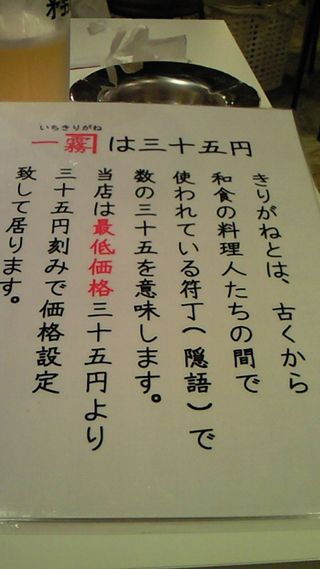 いちきりがね
一霧は三十五円
きりがねとは、古くから
和食の料理人たちの間で
使われている符丁(隠語)で
数の三十五を意味します。
当店は最低価格三十五円より
三十五円刻みで価格設定
致して居ります。